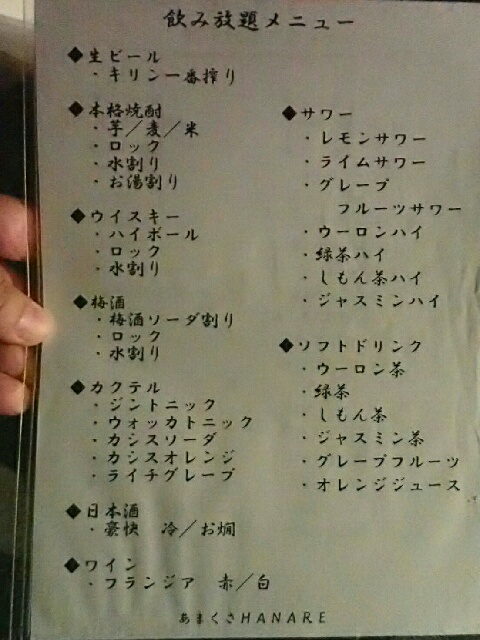 飲み放題メニュー
◆生ビール
・キリン一番搾り
◆本格焼酎
・芋／麦／米
・ロック
・水割り
・お湯割り
◆ウイスキー
・ハイボール
・ロック
・水割り
◆梅酒
・梅酒ソーダ割り
・ロック
・水割り
◆カクテル
・ジントニック
・ウォッカトニック
・カシスソーダ
・カシスオレンジ
・ライチグレープ
◆日本酒
・豪快　冷／お燗
◆ワイン
・フランジア　赤／白
◆サワー
・レモンサワー
・ライムサワー
・グレープ
フルーツサワー
・ウーロンハイ
・緑茶ハイ
・しもん茶ハイ
・ジャスミンハイ
◆ソフトドリンク
・ウーロン茶
・緑茶
・しもん茶
・ジャスミン茶
・グレープフルーツ
・オレンジジュース
あまくさHANARE